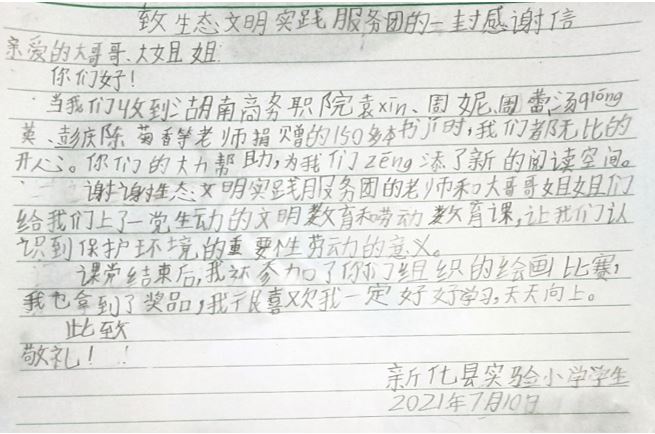 致生态文明实践服务团的一封感谢信
亲爱的大哥哥、大姐姐
你们好!
当我们收到湖南商务职院袁xīn、周妮、周蕾、汤qióng
英、彭庆陈菊香等老师捐赠的150多本书jí时,我们都无比的
开心。你们的大力帮助,为我们zēng添了新的阅读空间。
谢谢生态文明实践服务团的老师和大哥哥姐姐们
给我们上了一堂生动的文明教育和劳动教育课,让我们认
识到保护环境的重要性劳动的意义。
课堂结束后,我还参加了你们组织的绘画比赛,
我也拿到了奖品,我很喜欢我一定好好学习,天天向上。
此致
敬礼!!
新化县实验小学学生
2021年7月10日